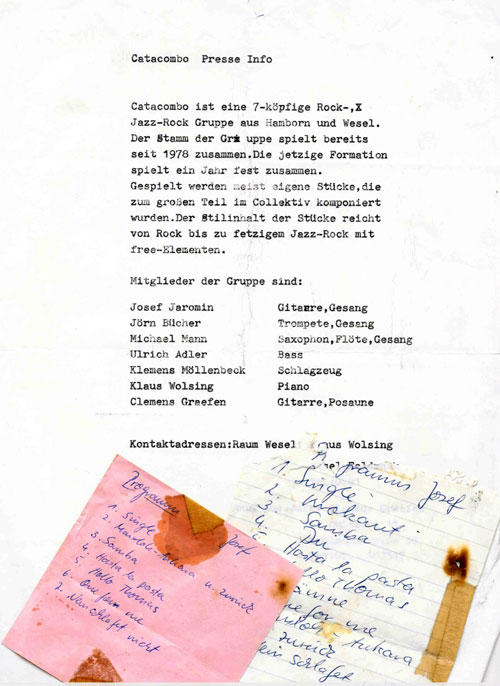 Catacombo Presse Info
Catacombo ist eine 7-köpfige Rock-,X
Jazz-Rock Gruppe aus Hamborn und Wesel.
Der Stamm der Gruppe spielt bereits
seit 1978 zusammen.Die jetzige Formation
spielt ein Jahr fest zusammen.
Gespielt werden meist eigene Stücke,die
zum großen Teil im Collektiv komponiert
wurden.Der Stilinhalt der Stücke reicht
von Rock bis zu fetzigem Jazz-Rock mit
free-Elementen.
Mitglieder der Gruppe sind:
Josef Jaromin Gitarre,Gesang
Jörn Bücher Trompete,Gesang
Michael Mann Saxophon,Flöte,Gesang
Ulrich Adler Bass
Klemens Möllenbeck Schlagzeug
Klaus Wolsing Piano
Clemens Graefen Gitarre,Posaune
Kontaktadressen:Raum Wesel Wolsing
Programm
1. Single
2. Ankara u. zurück
3. Samba
4. Hasta la pasta
5. Hallo Thomas
6. One for me
7. schlaft nicht
Josef
1. Single
2.
3. Samba
4. Du
5. Hasta la pasta
Thomas
for me
Ankara
zurück
schlafet